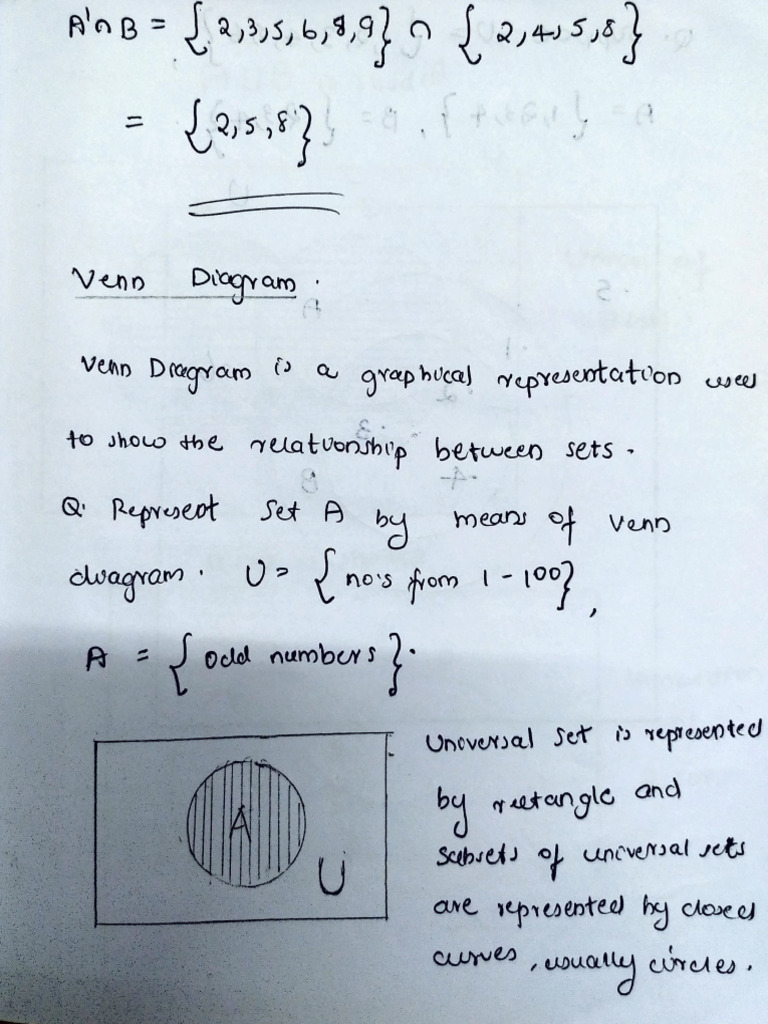 A'∩B = {2,3,5,6,8,9} ∩ {2,4,5,8}
= {2,5,8}
Venn Diagram.
Venn Diagram is a graphical representation used
to show the relationship between sets.
Q. Represent Set A by means of venn
diagram. U = {no's from 1 - 100},
A = {odd numbers}.
Universal set is represented
by rectangle and
subsets of universal sets
are represented by closed
curves, usually circles.
A
U